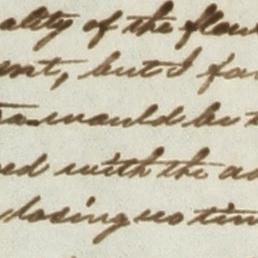 ality of the flow
ent, but I fa
would be t
ed with the a
losing no tim